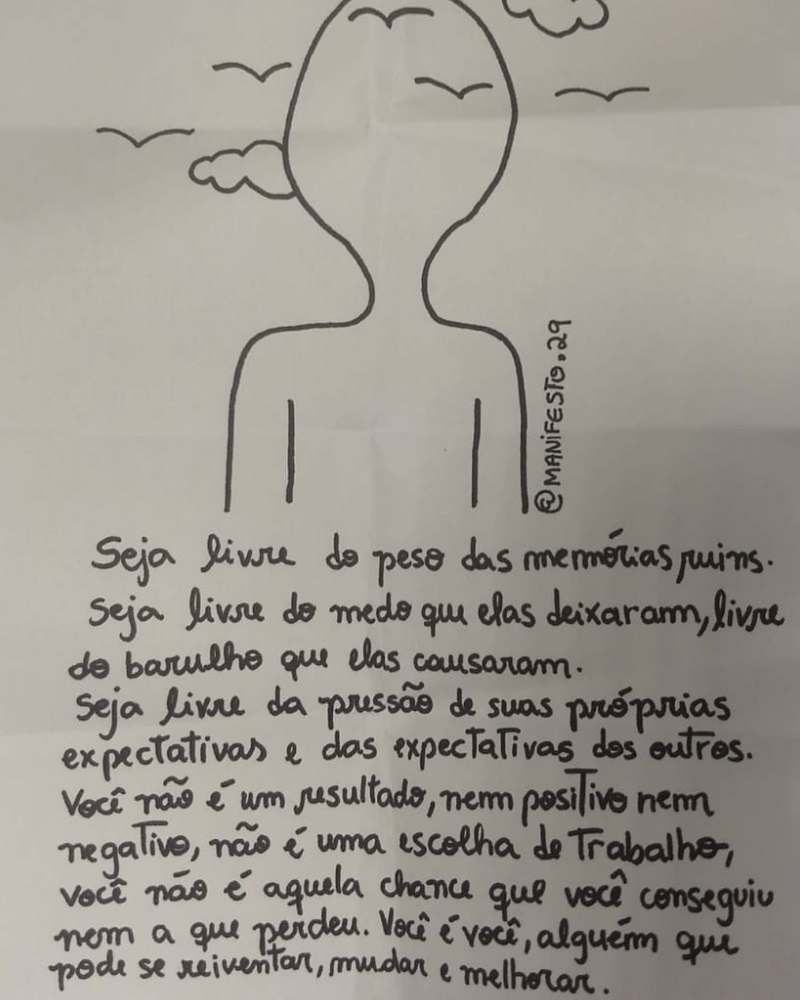 @MANIFESTO.29
Seja livre do peso das memórias ruins.
Seja livre do medo que elas deixaram, livre
do barulho que elas causaram.
Seja livre da pressão de suas próprias
expectativas e das expectativas dos outros.
Você não é um resultado, nem positivo nem
negativo, não é uma escolha de trabalho,
você não é aquela chance que você conseguiu
nem a que perdeu. Você é você, alguém que
pode se reiventar, mudar e melhorar.